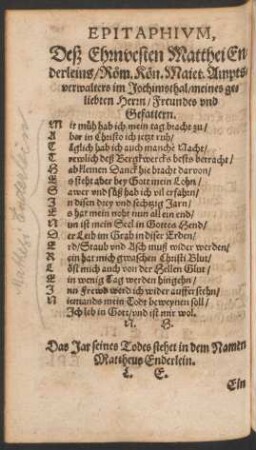 EPITAPHIVM,
Deß Ehrnvesten Matthei En-
derleins/Röm. Kön. Maiet. Ampts-
verwalters im Jochimsthal/meines ge-
liebten Herrn/Freundes vnd
Gefattern.
Mit müh hab ich mein tag bracht zu/
Aber in Christo ich jetzt ruh/
Täglich hab ich auch manche Nacht/
Trewlich deß Bergkwercks bests betracht/
Hab kleinen Danck hie bracht darvon/
Es steht aber bey Gott mein Lohn/
Sawer vnd süß hab ich vil erfahrn/
In disen drey vnd sechtzig Jarn/
Es hat mein noht nun all ein end/
Nun ist mein Seel in Gottes Hend/
Der Leib im Grab in diser Erden/
Erd/Staub vnd Asch muß wider werden/
Rein hat mich gwaschen Christi Blut/
Löst mich auch von der Hellen Glut/
Ein wenig Tag werden hingehn/
Inn Frewd werd ich wider aufferstehn/
Niemands mein Todt beweynen soll/
Ich leb in Gott/vnd ist mir wol.
N. H.
Das Jar seines Todes stehet in dem Namen
Mattheus Enderlein.
L. E.
Ein
Matthes Enderlein